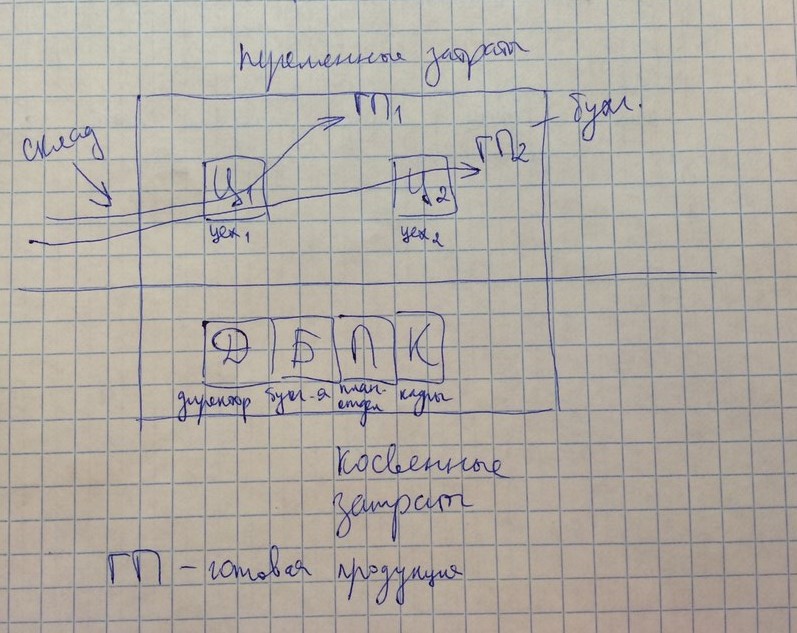 переменные затраты
ГП1
бухг.
склад
ГП2
Ц1
Ц2
цех1
цех2
Д
Б
П
К
директор
бухг-я
план-
отдел
кадры
Косвенные
затраты
ГП – готовая продукция